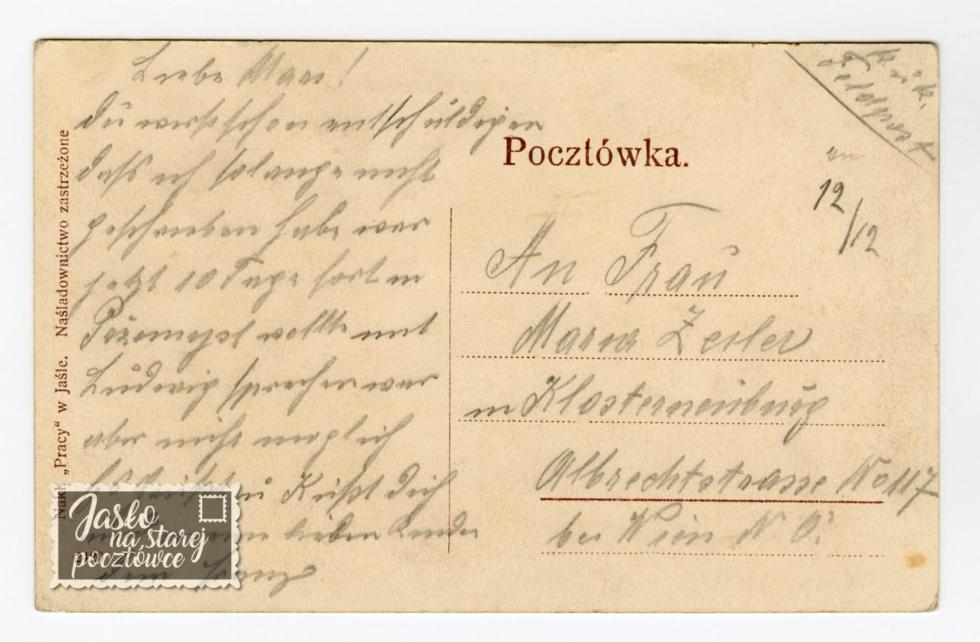 Liebe Marie!
Du wirst schon entschuldigen
daß ich so lange nicht
geschrieben habe war
jetzt 10 Tage fort in
Pžemysl wollte mit
Ludwig sprechen war
aber nicht möglich
Küßt Dich
lieben Kinder
Dein Franz
Nakł. „Pracy" w Jaśle. Naśladownictwo zastrzeżone
Jasło
na starej
pocztówce
Pocztówka.
k. u. k.
Feldpost
12/12
An Frau
Maria Zeiler
in Klosterneuburg
Albrechtstrasse No 117
bei Wien N. Ö.